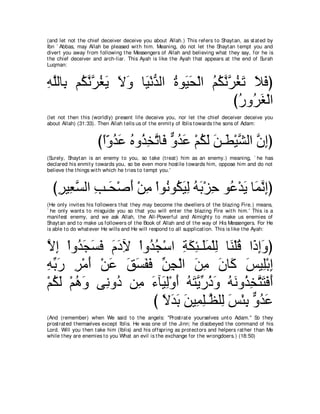 (and let not the chief deceiver deceive you about Allah.) This refers to Shaytan, as stated by
Ibn `Abbas, may Allah be pleased with him. Meaning, do not let the Shaytan tempt you and
divert you away from following the Messengers of Allah and believing what they say, for he is
the chief deceiver and arch-liar. This Ayah is like the Ayah that appears at the end of Surah
Luqman:
فَلاَ تَغُرَّنَّكُمُ الْحَيَوةُ الدُّنْيَا وَلاَ يَغُرَّنَّكُم بِاللَّهِ)
(الْغَرُورُ
(let not then this (worldly) present life deceive you, nor let the chief deceiver deceive you
about Allah) (31:33). Then Allah tells us of the enmity of Iblis towards the sons of Adam:
(إِنَّ الشَّيْطَـنَ لَكُمْ عَدُوٌّ فَاتَّخِذُوهُ عَدُوّاً)
(Surely, Shaytan is an enemy to you, so take (treat) him as an enemy.) meaning, `he has
declared his enmity towards you, so be even more hostile towards him, oppose him and do not
believe the things with which he tries to tempt you.'
(إِنَّمَا يَدْعُو حِزْبَهُ لِيَكُونُواْ مِنْ أَصْحَـبِ السَّعِيرِ)
(He only invites his followers that they may become the dwellers of the blazing Fire.) means,
`he only wants to misguide you so that you will enter the blazing Fire with him.' This is a
manifest enemy, and we ask Allah, the All-Powerful and Almighty to make us enemies of
Shaytan and to make us followers of the Book of Allah and of the way of His Messengers. For He
is able to do whatever He wills and He will respond to all supplication. This is like the Ayah:
(وَإِذَا قُلْنَا لِلْمَلَـئِكَةِ اسْجُدُواْ لأَدَمَ فَسَجَدُواْ إِلاَّ
إِبْلِيسَ كَانَ مِنَ الْجِنِّ فَفَسَقَ عَنْ أَمْرِ رَبِّهِ
أَفَتَتَّخِذُونَهُ وَذُرِّيَّتَهُ أَوْلِيَآءَ مِن دُونِى وَهُمْ لَكُمْ
عَدُوٌّ بِئْسَ لِلظَّـلِمِينَ بَدَلاً )
(And (remember) when We said to the angels: "Prostrate yourselves unto Adam." So they
prostrated themselves except Iblis. He was one of the Jinn; he disobeyed the command of his
Lord. Will you then take him (Iblis) and his offspring as protectors and helpers rather than Me
while they are enemies to you What an evil is the exchange for the wrongdoers.) (18:50)